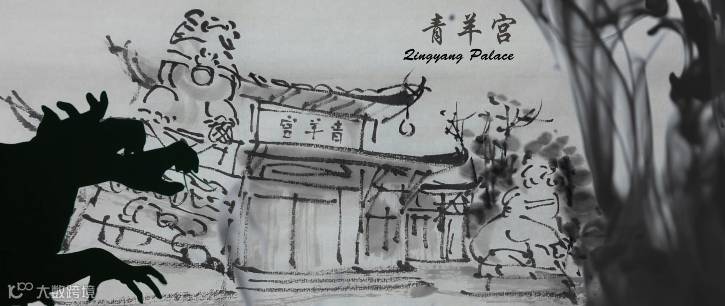 青羊宫
Qingyang Palace
青羊宮
大数跨境